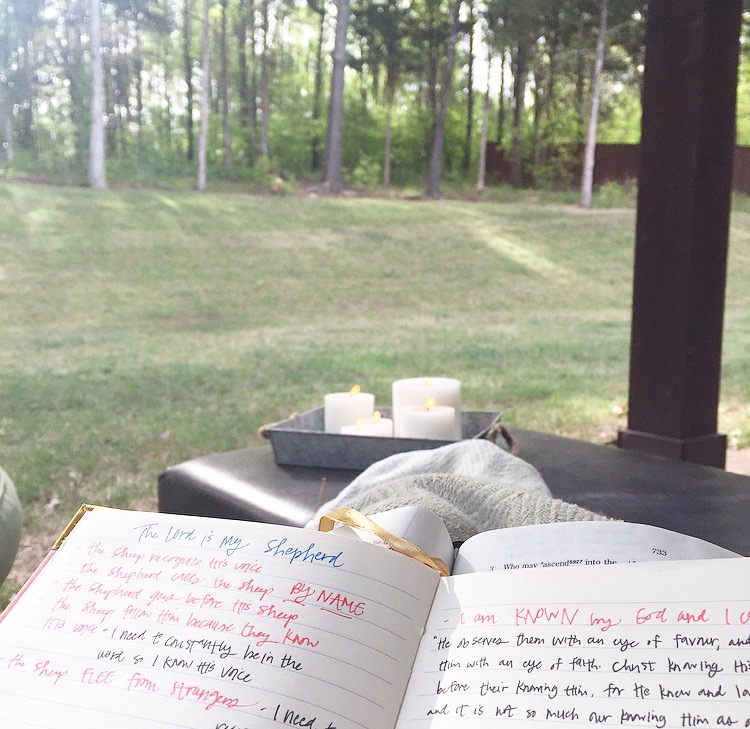 The Lord is My Shepherd
- the sheep recognize His voice
- the shepherd calls the sheep BY NAME
- the shepherd goes before His sheep
- the sheep follow Him because they know
His voice - I need to constantly be in the
word so I know His voice
- the sheep FLEE from strangers - I need to
733
3 Who may ascend5927 into the
- I am KNOWN by God and I
"He observes them with an eye of favour, and
Him with an eye of faith. Christ knowing His
before their knowing Him, for He knew and
and it is not so much our knowing Him as